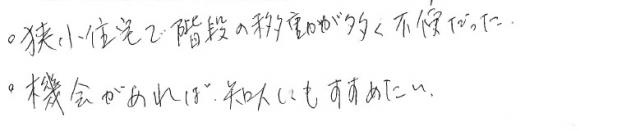 。狭小住宅で階段の移動が多く不便だった.
。機会があれば.知人にもすすめたい.